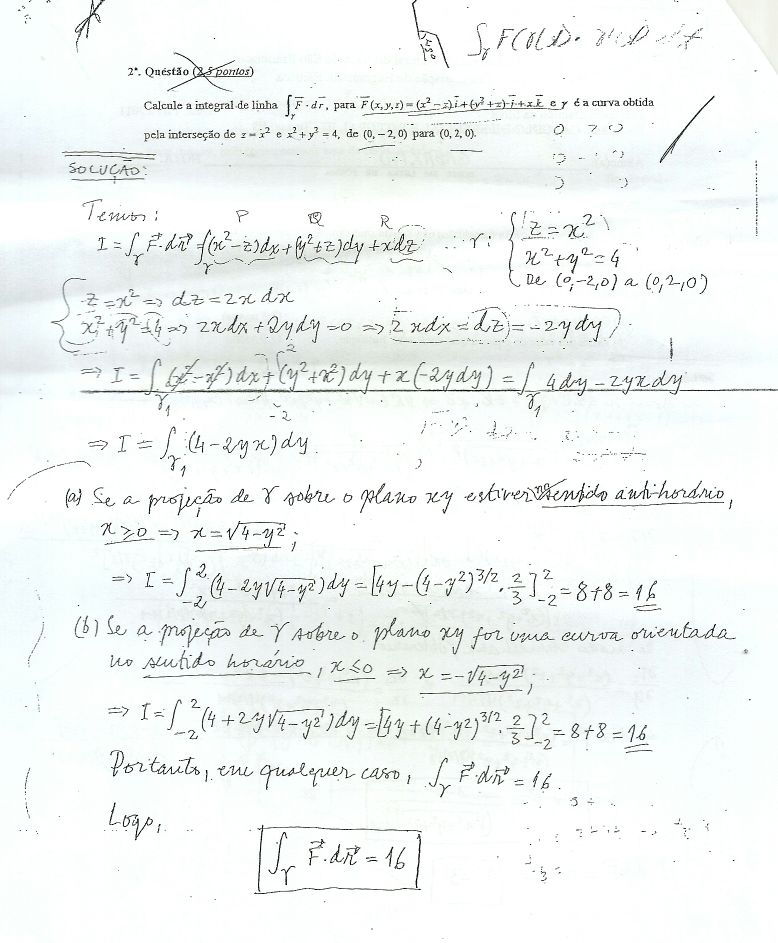 ∫_γ F(γ(t)) ·
2ª. Questão (2,5 pontos)
Calcule a integral de linha ∫_γ F⃗ · dr⃗, para F⃗(x,y,z) = (x² − z)·i⃗ + (y² + z)·j⃗ + x.k⃗ e γ é a curva obtida
pela interseção de z = x² e x² + y² = 4, de (0, −2, 0) para (0, 2, 0).
SOLUÇÃO:
Temos: P Q R
I = ∫_γ F⃗·dr⃗ = ∫_γ (x²−z)dx + (y²+z)dy + xdz γ: { z = x²
x²+y² = 4
De (0,−2,0) a (0,2,0)
{ z = x² ⇒ dz = 2x dx
x²+y² = 4 ⇒ 2xdx + 2ydy = 0 ⇒ 2xdx = dz = −2ydy
⇒ I = ∫_γ₁ (x²−x²)dx + (y²+x²)dy + x(−2ydy) = ∫_γ₁ 4dy − 2yxdy
⇒ I = ∫_γ₁ (4−2yx)dy
(a) Se a projeção de γ sobre o plano xy estiver no sentido anti-horário,
x ≥ 0 ⇒ x = √(4−y²);
⇒ I = ∫_{−2}^{2} (4−2y√(4−y²))dy = [4y−(4−y²)^{3/2}·2/3]_{−2}^{2} = 8+8 = 16
(b) Se a projeção de γ sobre o plano xy for uma curva orientada
no sentido horário, x ≤ 0 ⇒ x = −√(4−y²),
⇒ I = ∫_{−2}^{2} (4+2y√(4−y²))dy = [4y+(4−y²)^{3/2}·2/3]_{−2}^{2} = 8+8 = 16
Portanto, em qualquer caso, ∫_γ F⃗·dr⃗ = 16.
Logo,
∫_γ F⃗·dr⃗ = 16